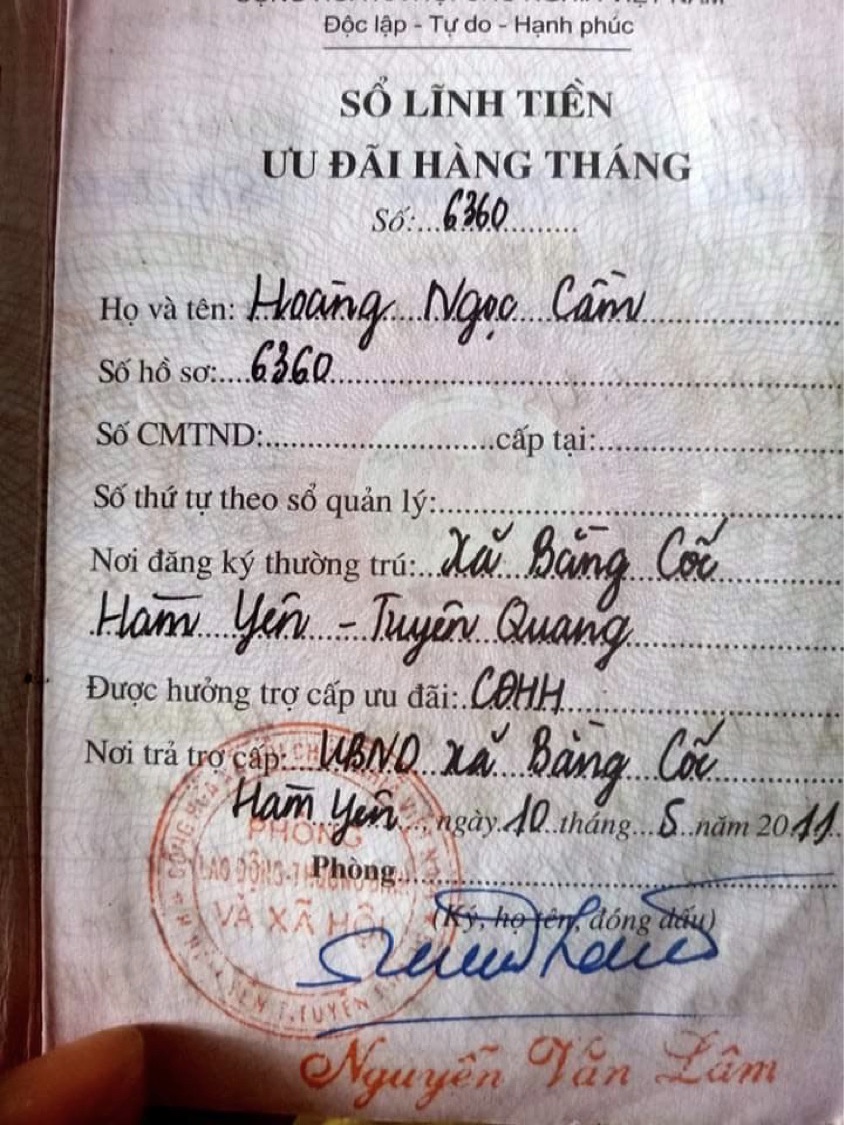 Độc lập - Tự do - Hạnh phúc
SỔ LĨNH TIỀN
ƯU ĐÃI HÀNG THÁNG
Số:...6360
Họ và tên: Hoàng Ngọc Cầm
Số hồ sơ:....6360
Số CMTND:........................cấp tại:
Số thứ tự theo sổ quản lý:
Nơi đăng ký thường trú: Xã Bằng Cốc
Hàm Yên - Tuyên Quang
Được hưởng trợ cấp ưu đãi: CĐHH
Nơi trả trợ cấp: UBND xã Bằng Cốc
Hàm Yên, ngày 10 tháng 5 năm 2011
Phòng
(Ký, họ tên, đóng dấu)
PHÒNG
LAO ĐỘNG-THƯƠNG BINH
VÀ XÃ HỘI
Nguyễn Văn Lâm